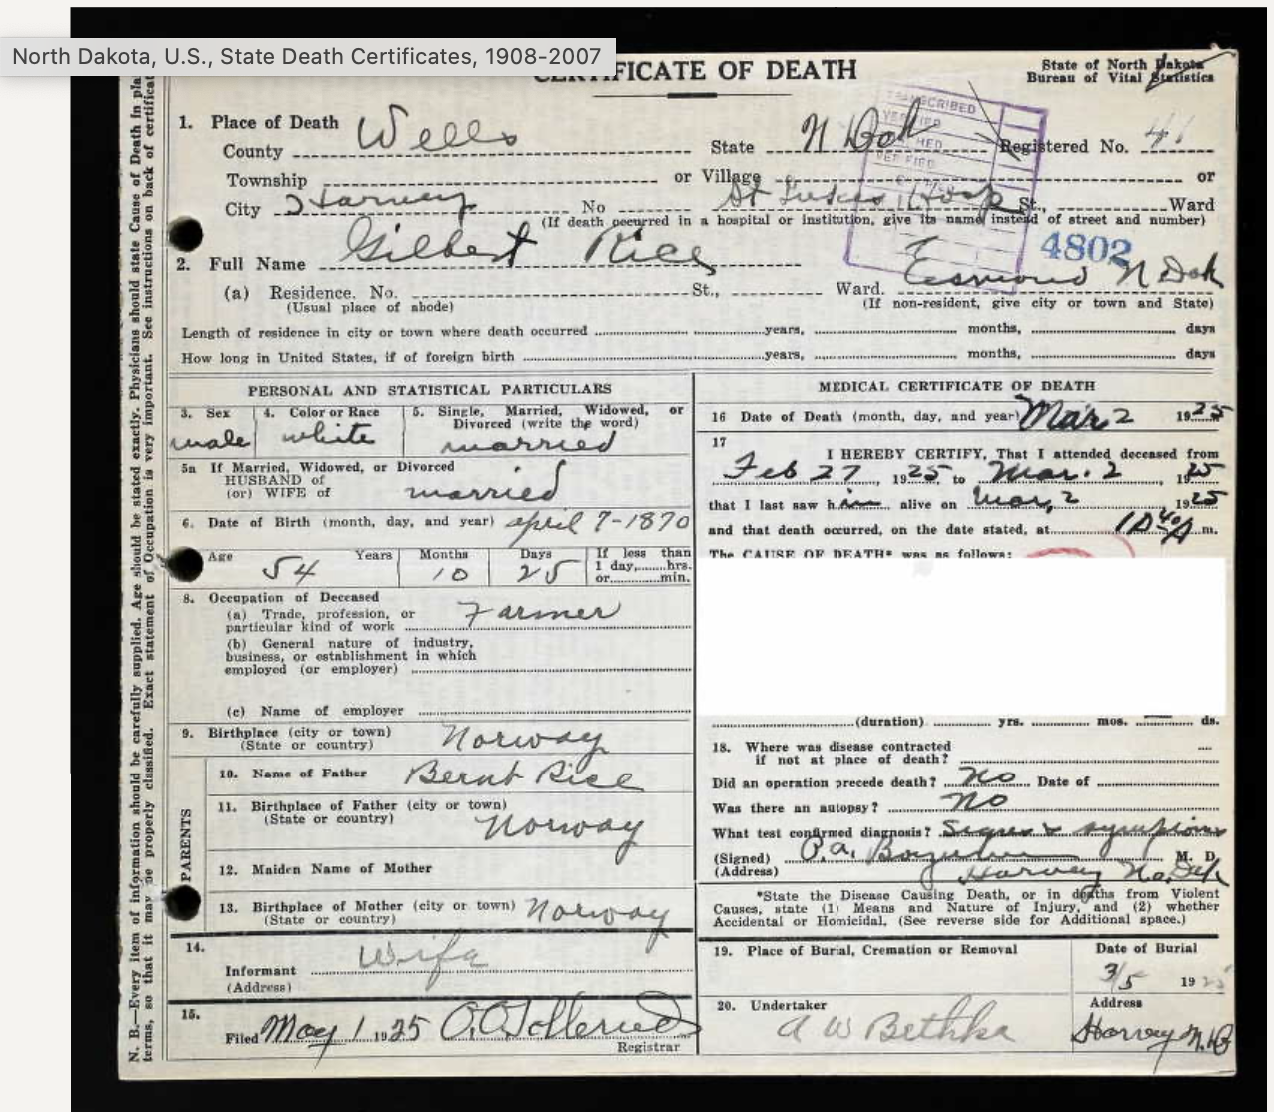 North Dakota, U.S., State Death Certificates, 1908-2007
CERTIFICATE OF DEATH
State of North Dakota
Bureau of Vital Statistics
TRANSCRIBED
VERIFIED
1. Place of Death
County Wells State N Dak Registered No. 41
Township or Village or
City Harvey No St Lukes Hosp St., Ward
(If death occurred in a hospital or institution, give its name instead of street and number)
4802
2. Full Name Gilbert Rice
(a) Residence. No. St., Ward. Esmond N Dak
(Usual place of abode) (If non-resident, give city or town and State)
Length of residence in city or town where death occurred years, months, days
How long in United States, if of foreign birth years, months, days
PERSONAL AND STATISTICAL PARTICULARS
3. Sex 4. Color or Race 5. Single, Married, Widowed, or
Divorced (write the word)
male white married
5a If Married, Widowed, or Divorced
HUSBAND of
(or) WIFE of married
6. Date of Birth (month, day, and year) april 7-1870
Age Years Months Days If less than
1 day, hrs.
or min.
54 10 25
8. Occupation of Deceased
(a) Trade, profession, or
particular kind of work Farmer
(b) General nature of industry,
business, or establishment in which
employed (or employer)
(c) Name of employer
9. Birthplace (city or town)
(State or country) Norway
PARENTS
10. Name of Father Bernt Rice
11. Birthplace of Father (city or town)
(State or country) Norway
12. Maiden Name of Mother
13. Birthplace of Mother (city or town) Norway
(State or country)
14.
Informant Wife
(Address)
15.
Filed May 1 1925
Registrar
MEDICAL CERTIFICATE OF DEATH
16 Date of Death (month, day, and year) Mar 2 1925
17
I HEREBY CERTIFY, That I attended deceased from
Feb 27, 1925, to Mar. 2, 1925
that I last saw him alive on Mar, 2 1925
and that death occurred, on the date stated, at m.
The CAUSE OF DEATH* was as follows:
(duration) yrs. mos. ds.
18. Where was disease contracted
if not at place of death?
Did an operation precede death? No Date of
Was there an autopsy? no
What test confirmed diagnosis? Signs & symptoms
(Signed) P.A. M. D.
(Address) Harvey No. Dak
*State the Disease Causing Death, or in deaths from Violent
Causes, state (1) Means and Nature of Injury, and (2) whether
Accidental or Homicidal. (See reverse side for Additional space.)
19. Place of Burial, Cremation or Removal Date of Burial
3/5 1925
20. Undertaker Address
A W Bethke Harvey N.D
N. B.—Every item of information should be carefully supplied. Age should be stated exactly. Physicians should state Cause of Death in pla
terms, so that it may be properly classified. Exact statement of Occupation is very important. See instructions on back of certificat